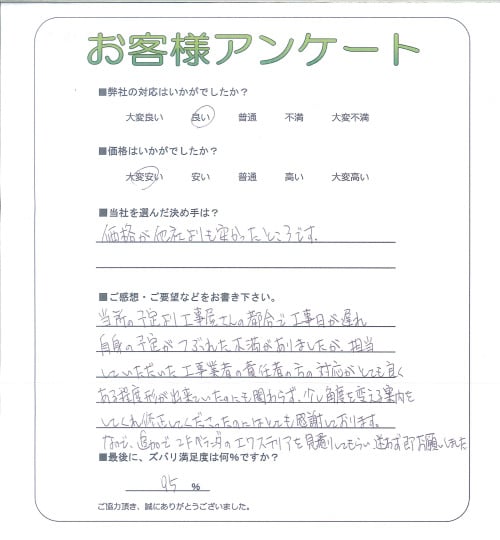 お客様アンケート
■弊社の対応はいかがでしたか？
大変良い 良い 普通 不満 大変不満
■価格はいかがでしたか？
大変安い 安い 普通 高い 大変高い
■当社を選んだ決め手は？
価格が他社よりも安かったところです。
■ご感想・ご要望などをお書き下さい。
当初の予定より工事屋さんの都合で工事日が遅れ
自身の予定がつぶれた不満がありましたが、担当
していただいた工事業者の責任者の方の対応がとても良く
ある程度形が出来ていたのにも関わらず、少し角度を変える案内を
してくれ修正してくださったのにはとても感謝しております。
なので、追加で エクステリアを見積りしてもらい迷わず即お願いしました
■最後に、ズバリ満足度は何%ですか？
95 %
ご協力頂き、誠にありがとうございました。